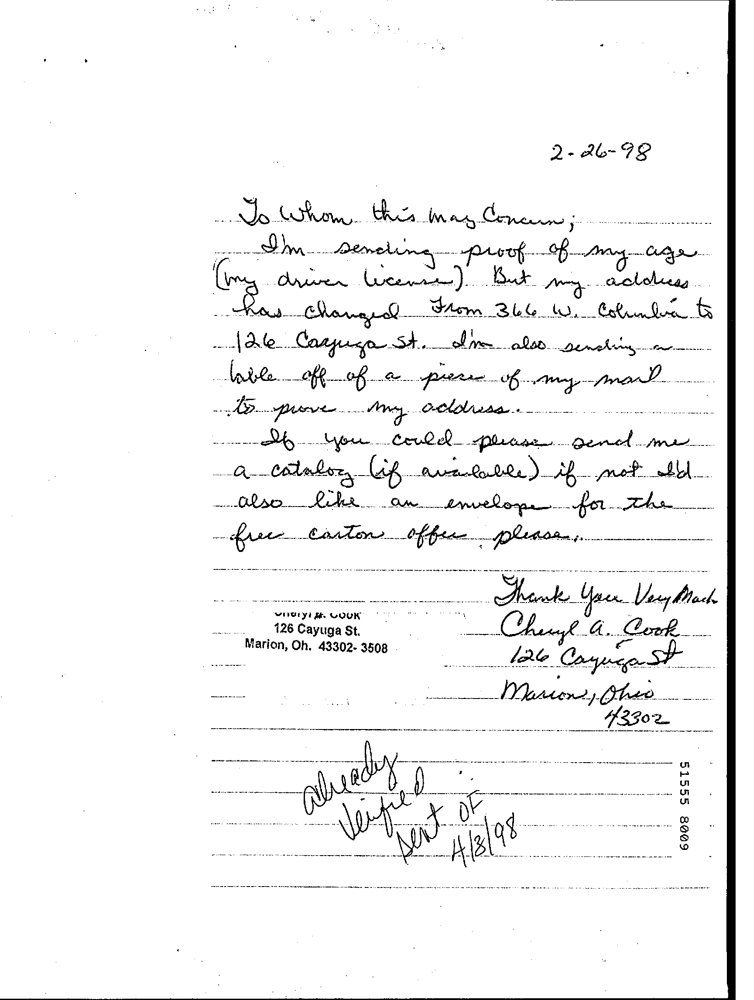 2-26-98
To Whom this may Concern;
I'm sending proof of my age
(my driver license). But my address
has changed From 366 W. Columbia to
126 Cayuga St. I'm also sending a
lable off of a piece of my mail
to prove my address.
If you could please send me
a catalog (if available) if not I'd
also like an envelope for the
free carton offer please.
Thank You Very Much
Cheryl A. Cook
126 Cayuga St
Marion, Ohio
43302
Cheryl A. Cook
126 Cayuga St.
Marion, Oh. 43302-3508
already
Verified
sent OF
4/3/98
51555 8009